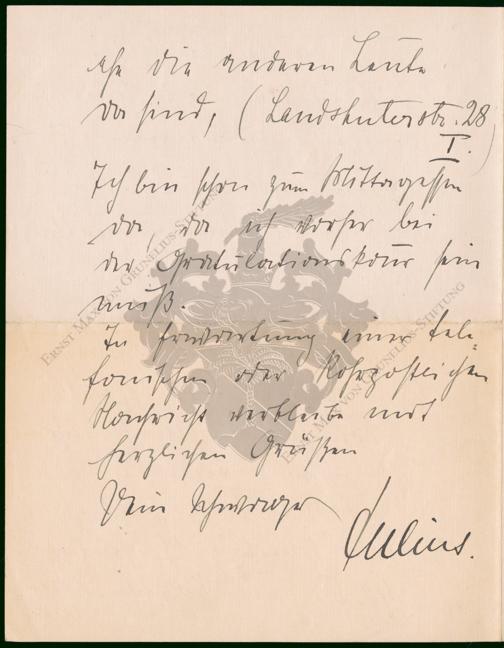 ehe die anderen Leute
da sind, (Landshuterstr. 28
I.)
Ich bin schon zum Mittagessen
da, da ich vorher bei
der Gratulationskour sein
muß.
In Erwartung einer tele-
fonischen oder Rohrpostlichen
Nachricht verbleibe mit
herzlichen Grüßen
Dein Schwager
Julius.
ERNST MAX VON GRUNELIUS-STIFTUNG
ERNST MAX VON GRUNELIUS-STIFTUNG